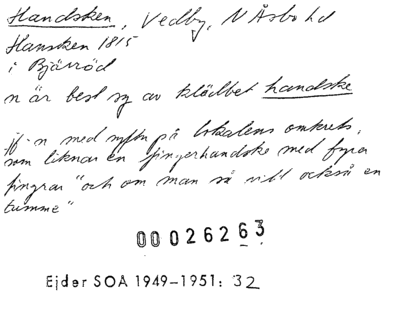 Handsken, Vedby, N Åsbo hd
Hansken 1815
i Bjärröd
n är best sg av klädbet handske
jf-n med syftn på lokalens omkrets,
som liknar en fingerhandske med fyra
fingrar "och om man så vill också en
tumme"
00026263
Ejder SOA 1949-1951: 32